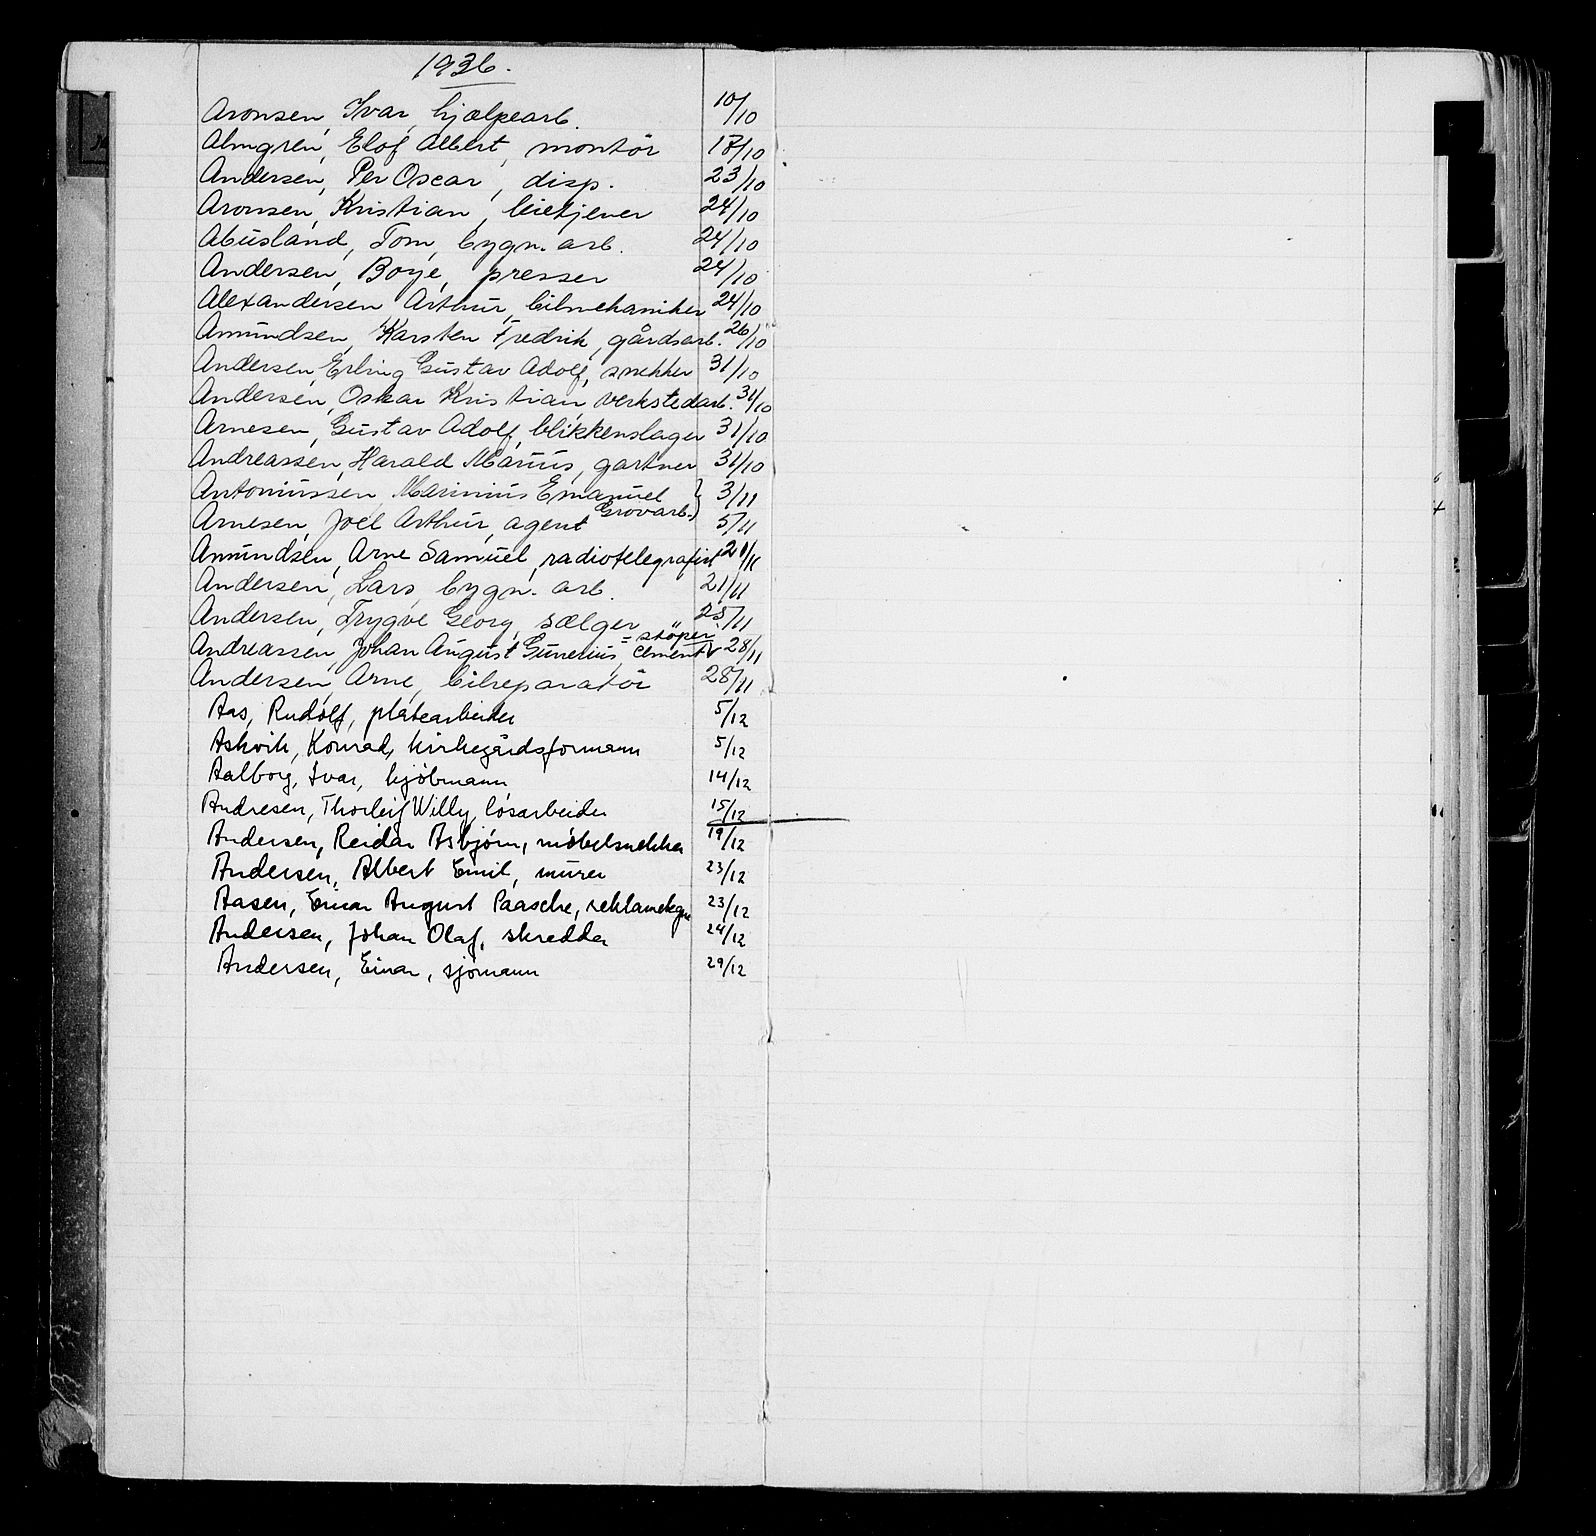 1936.
Aronsen, Ivar, hjælpearb. 10/10
Almgren, Elof Albert, montör 17/10
Andersen, Per Oscar, disp. 23/10
Aronsen, Kristian, leietjener 24/10
Abusland, Tom, bygn. arb. 24/10
Andersen, Boye, presser 24/10
Alexandersen Arthur, bilmekaniker 24/10
Amundsen, Karsten Fredrik, gårdsarb. 26/10
Andersen, Erling Gustav Adolf, snekker 31/10
Andersen, Oskar Kristian, verkstedarb. 31/10
Arnesen, Gustav Adolf, blikkenslager 31/10
Andreassen, Harald Marius, gartner 31/10
Antoniussen Marinius Emanuel } 3/11
Grovarb.
Arnesen, Joel Arthur, agent 5/11
Amundsen, Arne Samuel, radiotelegrafist 21/11
Andersen, Lars, bygn. arb. 21/11
Andersen, Trygve Georg, sælger 25/11
= stöper
Andreassen, Johan August Gunerius, cement 28/11
Andersen, Arne, bilreparatör 28/11
Aas, Rudolf, platearbeider 5/12
Askvik, Konrad, kirkegårdsformann 5/12
Aalborg, Ivar, kjøbmann 14/12
Andresen, Thorleif Willy, løsarbeider 15/12
Andersen, Reidar Asbjørn, møbelsnekker 19/12
Andersen, Albert Emil, murer 23/12
Aasen, Einar August Paasche, reklametegn 23/12
Andersen, Johan Olaf, skredder 24/12
Andersen, Einar, sjømann 29/12